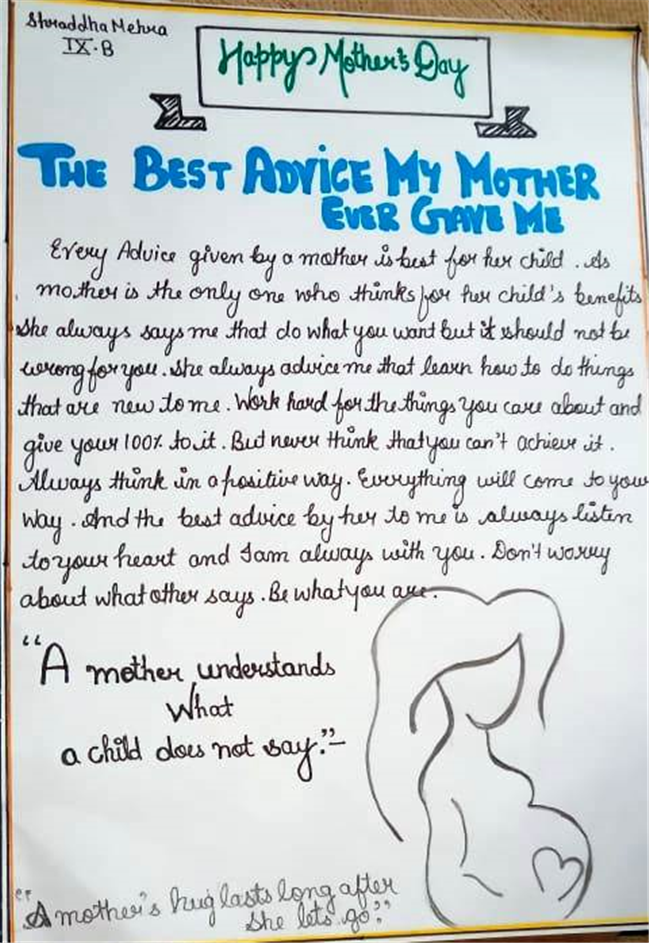 Shraddha Mehra
IX-B
Happy Mother's Day
THE BEST ADVICE MY MOTHER
EVER GAVE ME
Every Advice given by a mother is best for her child. As
mother is the only one who thinks for her child's benefits
She always says me that do what you want but it should not be
wrong for you. She always advice me that learn how to do things
that are new to me. Work hard for the things you care about and
give your 100% to it. But never think that you can't achieve it.
Always think in a positive way. Everything will come to your
way. And the best advice by her to me is always listen
to your heart and I am always with you. Don't worry
about what other says. Be what you are.
"A mother understands
What
a child does not say."-
"A mother's hug lasts long after
she lets go."